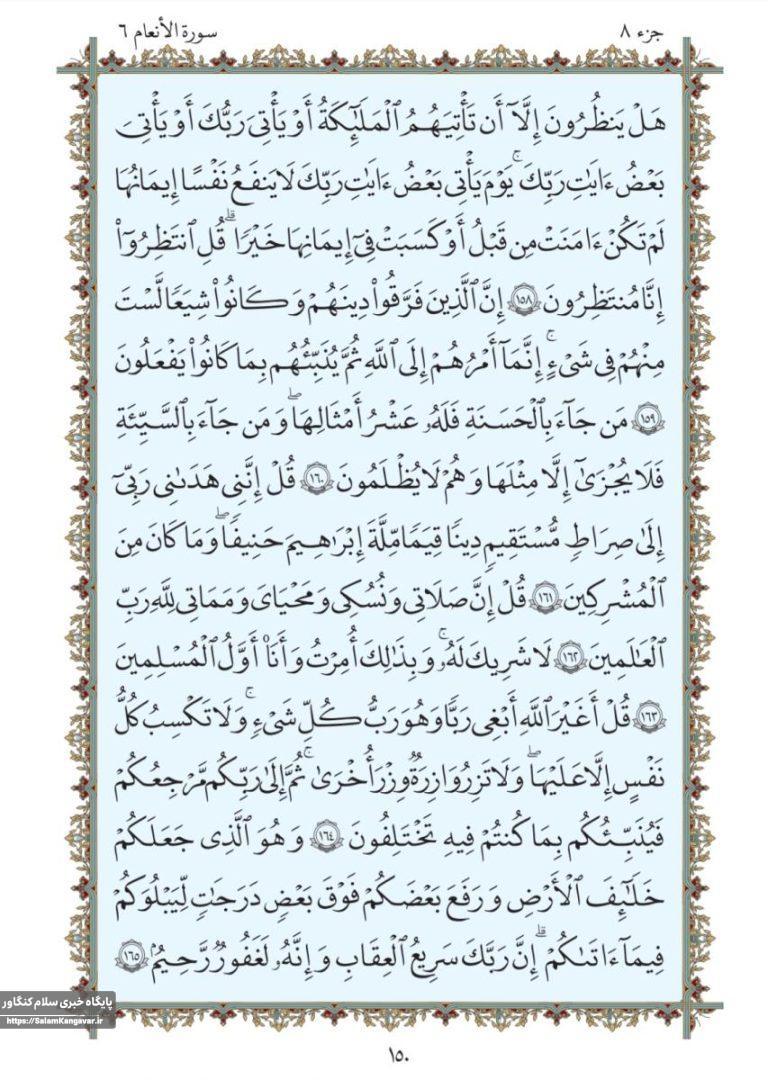 جزء ٨
سورة الأنعام ٦
هَلْ يَنظُرُونَ إِلَّآ أَن تَأْتِيَهُمُ ٱلْمَلَٰٓئِكَةُ أَوْ يَأْتِىَ رَبُّكَ أَوْ يَأْتِىَ
بَعْضُ ءَايَٰتِ رَبِّكَ ۗ يَوْمَ يَأْتِى بَعْضُ ءَايَٰتِ رَبِّكَ لَا يَنفَعُ نَفْسًا إِيمَٰنُهَا
لَمْ تَكُنْ ءَامَنَتْ مِن قَبْلُ أَوْ كَسَبَتْ فِىٓ إِيمَٰنِهَا خَيْرًا ۗ قُلِ ٱنتَظِرُوٓا۟
إِنَّا مُنتَظِرُونَ ١٥٨ إِنَّ ٱلَّذِينَ فَرَّقُوا۟ دِينَهُمْ وَكَانُوا۟ شِيَعًا لَّسْتَ
مِنْهُمْ فِى شَىْءٍ ۚ إِنَّمَآ أَمْرُهُمْ إِلَى ٱللَّهِ ثُمَّ يُنَبِّئُهُم بِمَا كَانُوا۟ يَفْعَلُونَ
١٥٩ مَن جَآءَ بِٱلْحَسَنَةِ فَلَهُۥ عَشْرُ أَمْثَالِهَا ۖ وَمَن جَآءَ بِٱلسَّيِّئَةِ
فَلَا يُجْزَىٰٓ إِلَّا مِثْلَهَا وَهُمْ لَا يُظْلَمُونَ ١٦٠ قُلْ إِنَّنِى هَدَىٰنِى رَبِّىٓ
إِلَىٰ صِرَٰطٍ مُّسْتَقِيمٍ دِينًا قِيَمًا مِّلَّةَ إِبْرَٰهِيمَ حَنِيفًا ۖ وَمَا كَانَ مِنَ
ٱلْمُشْرِكِينَ ١٦١ قُلْ إِنَّ صَلَاتِى وَنُسُكِى وَمَحْيَاىَ وَمَمَاتِى لِلَّهِ رَبِّ
ٱلْعَٰلَمِينَ ١٦٢ لَا شَرِيكَ لَهُۥ ۖ وَبِذَٰلِكَ أُمِرْتُ وَأَنَا۠ أَوَّلُ ٱلْمُسْلِمِينَ
١٦٣ قُلْ أَغَيْرَ ٱللَّهِ أَبْغِى رَبًّا وَهُوَ رَبُّ كُلِّ شَىْءٍ ۚ وَلَا تَكْسِبُ كُلُّ
نَفْسٍ إِلَّا عَلَيْهَا ۚ وَلَا تَزِرُ وَازِرَةٌ وِزْرَ أُخْرَىٰ ۚ ثُمَّ إِلَىٰ رَبِّكُم مَّرْجِعُكُمْ
فَيُنَبِّئُكُم بِمَا كُنتُمْ فِيهِ تَخْتَلِفُونَ ١٦٤ وَهُوَ ٱلَّذِى جَعَلَكُمْ
خَلَٰٓئِفَ ٱلْأَرْضِ وَرَفَعَ بَعْضَكُمْ فَوْقَ بَعْضٍ دَرَجَٰتٍ لِّيَبْلُوَكُمْ
فِى مَآ ءَاتَىٰكُمْ ۗ إِنَّ رَبَّكَ سَرِيعُ ٱلْعِقَابِ وَإِنَّهُۥ لَغَفُورٌ رَّحِيمٌۢ ١٦٥
پایگاه خبری سلام کنگاور
https://SalamKangavar.ir
١٥٠